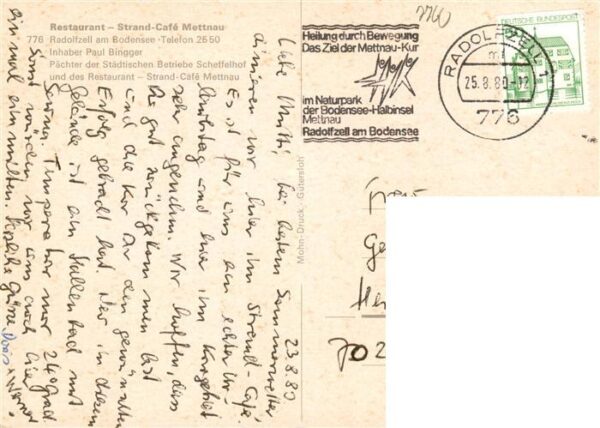 Restaurant – Strand-Café Mettnau
776 Radolfzell am Bodensee · Telefon 2650
Inhaber Paul Bingger
Pächter der Städtischen Betriebe Scheffelhof
und des Restaurant – Strand-Café Mettnau
7760
Heilung durch Bewegung
Das Ziel der Mettnau-Kur
im Naturpark
der Bodensee-Halbinsel
Mettnau
Radolfzell am Bodensee
RADOLFZELL 1
25.8.80-12
776
DEUTSCHE BUNDESPOST
Mohn-Druck · Gütersloh
23.8.80
Liebe Mutti, bei bestem Sommerwetter,
dinieren wir hier im Strand-Café.
Es ist für uns ein echter Ur-
laubstag und hier im Kurgebiet
sehr angenehm. Wir hoffen, dass
Du gut zurückgekommen bist
und die Kur Dir den gewünschten
Erfolg gebracht hat. Hier in diesem
Gelände ist ein Hallenbad mit
nur 24 Grad.
Sonst würden wir uns auch hier
einmal einmieten. Herzliche Grüsse
Doris + Werner
Frau
702